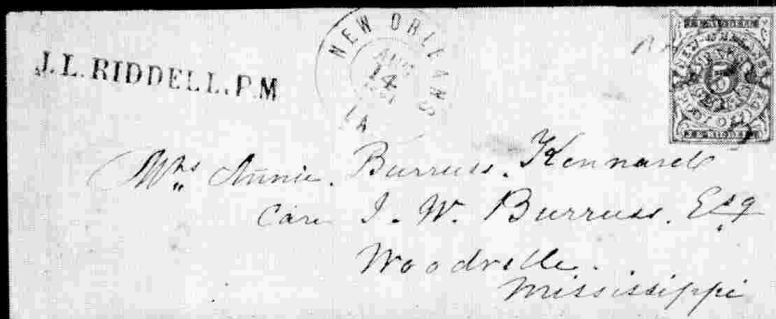 J.L. RIDDELL, P.M
NEW ORLEANS
AUG
14
LA
5
J.L. RIDDELL
Mrs Annie. Burruss. Kennard
Care J. W. Burruss. Esq
Woodville.
Mississippi